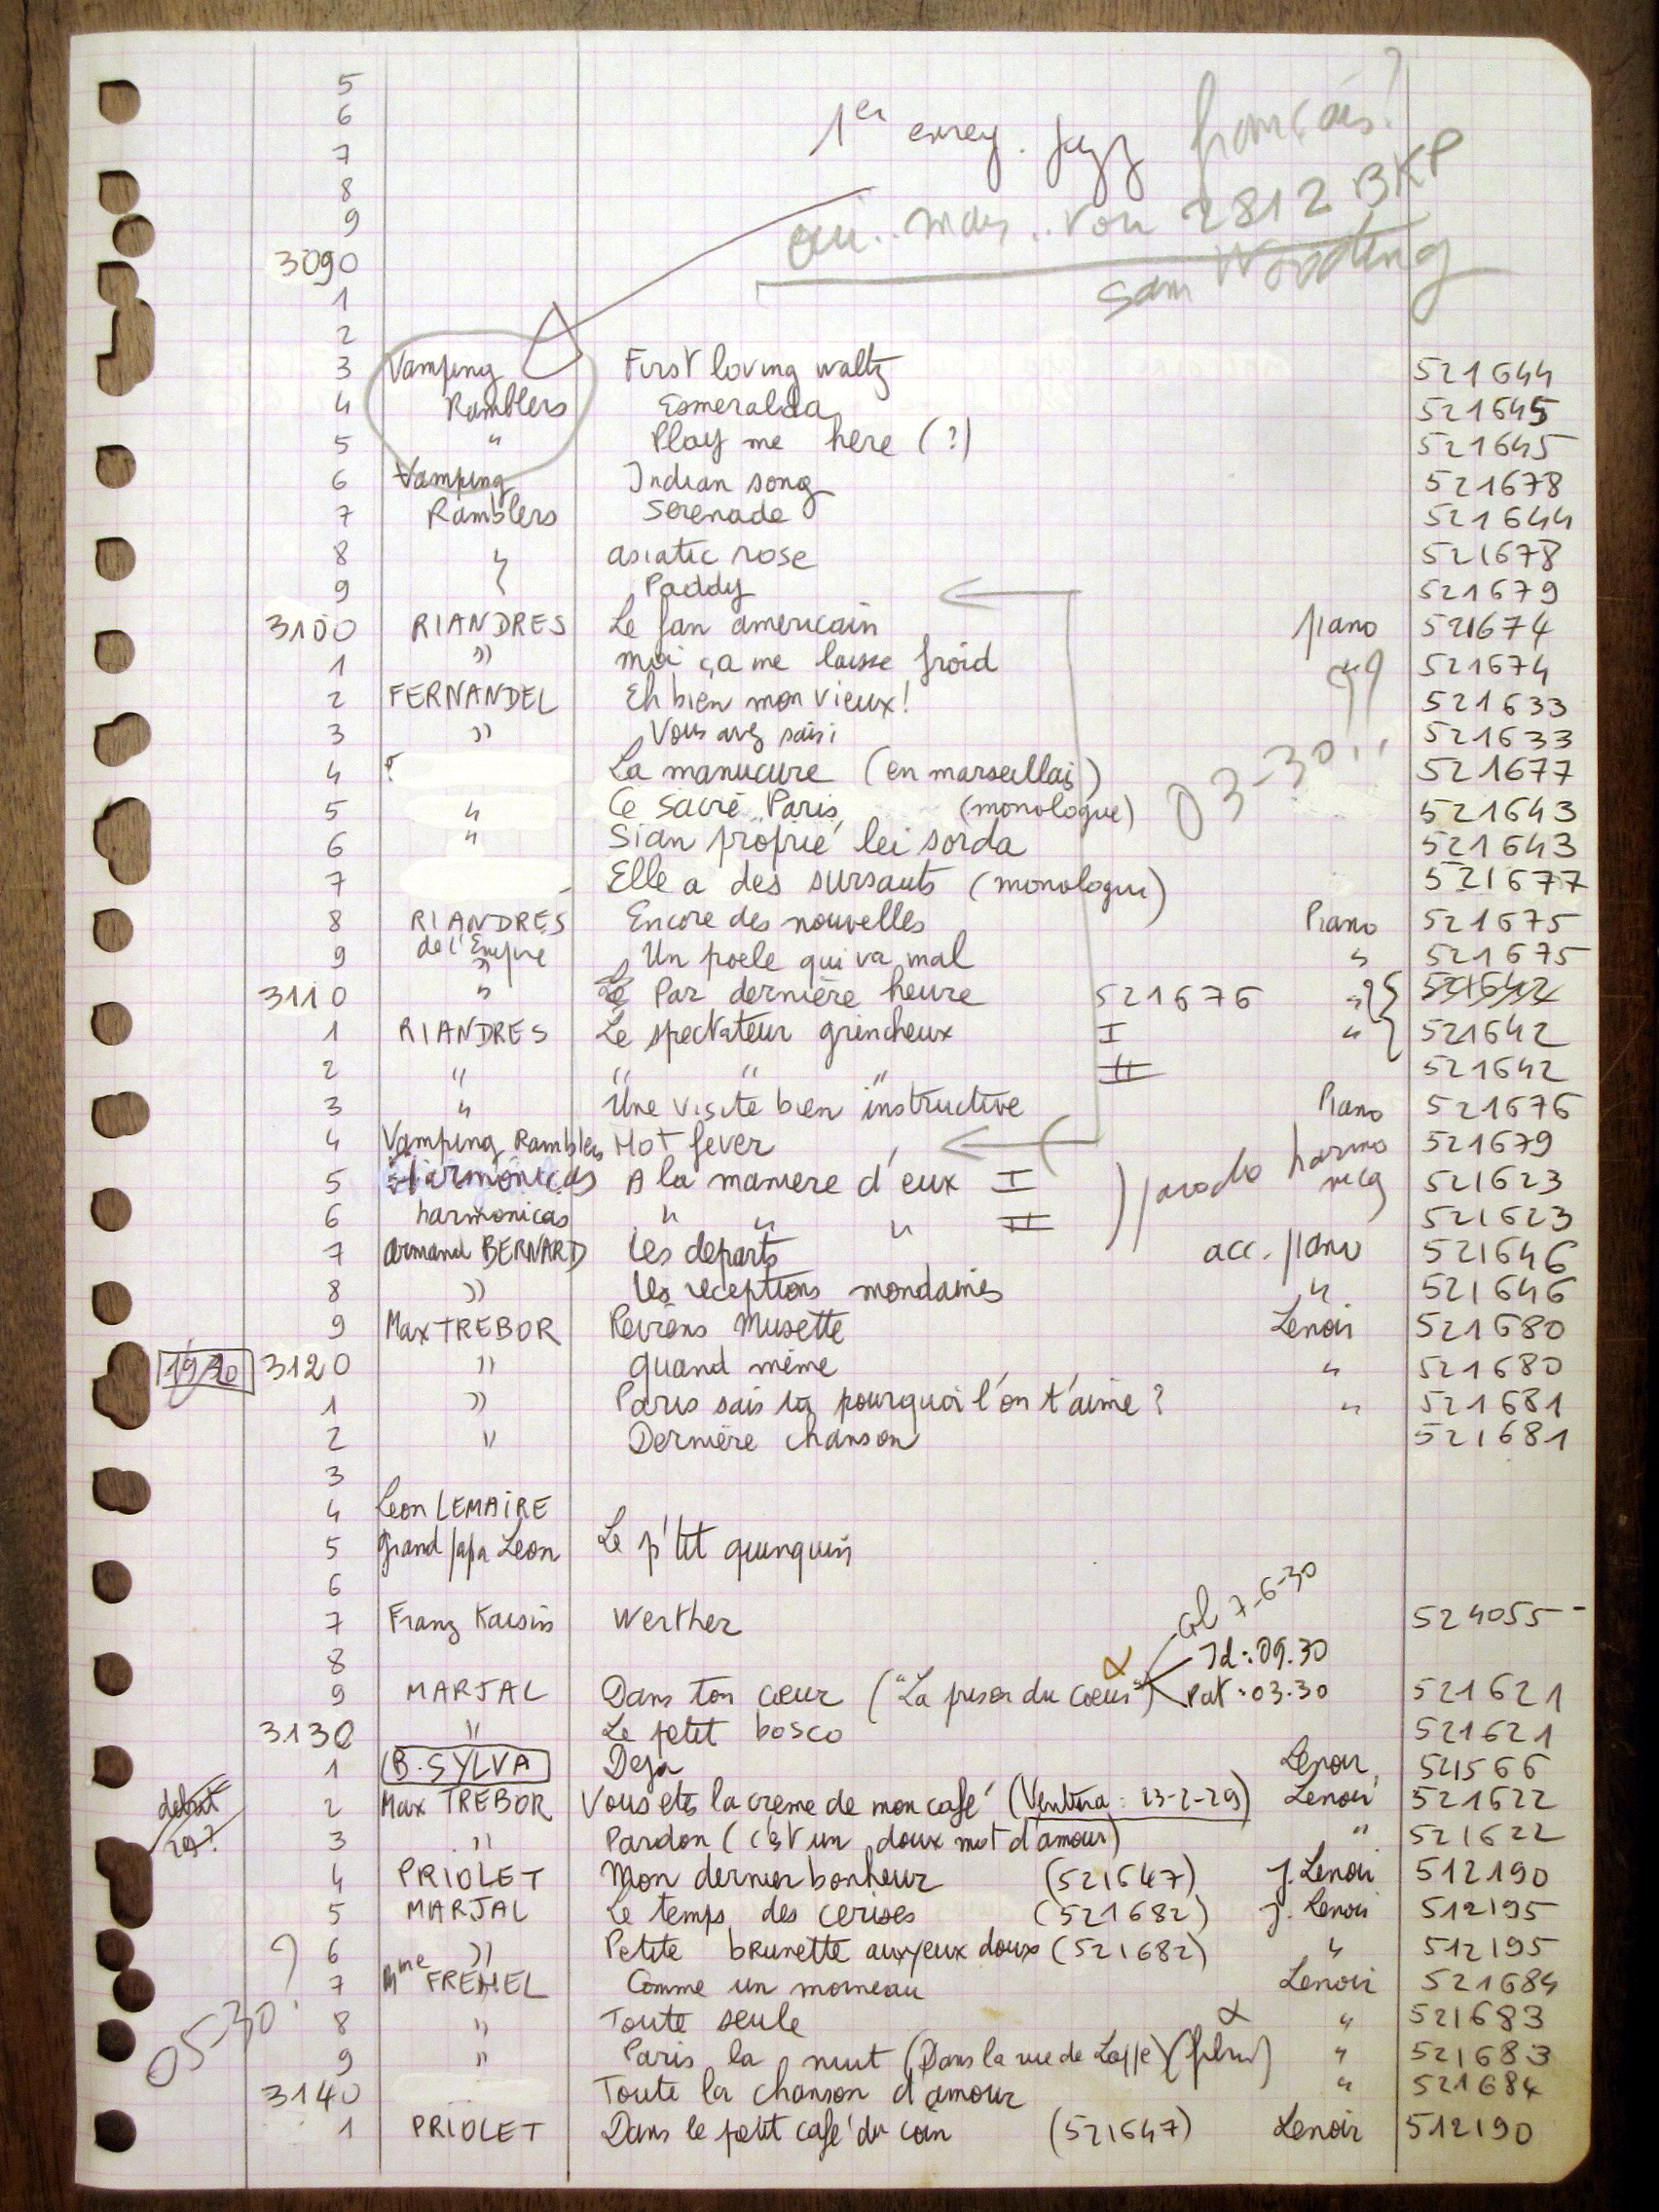 5
6 1er enreg. jazz français?
7
8
9 oui.. mais.. voir 2812 BKP
3090 Sam Wooding
1
2
3 Vamping First loving waltz 521644
4 Ramblers Esmeralda 521645
5 " Play me here (?) 521645
6 Vamping Indian song 521678
7 Ramblers Serenade 521644
8 " asiatic rose 521678
9 Paddy 521679
3100 RIANDRES Le fan americain piano 521674
1 " moi ça me laisse froid " 521674
2 FERNANDEL Eh bien mon vieux! 521633
3 " Vous avez saisi 521633
4 La manucure (en marseillais) 03-30!! 521677
5 " Ce sacré Paris (monologue) 521643
6 " Sian proprié lei sorda 521643
7 Elle a des sursauts (monologue) 521677
8 RIANDRES Encore des nouvelles Piano 521675
9 de l'Empire " Un poele qui va mal " 521675
3110 " Par dernière heure 521676 " 521642
1 RIANDRES Le spectateur grincheux I " 521642
2 " " " " II 521642
3 " Une visite bien instructive Piano 521676
4 Vamping Ramblers Hot fever 521679
5 Harmonicas A la maniere d'eux I parodo harmo 521623
6 harmonicas " " " II nicq 521623
7 Armand BERNARD Les departs acc. piano 521646
8 " les receptions mondaines " 521646
9 Max TREBOR Reviens Musette Lenoir 521680
1930 3120 " quand même " 521680
1 " Paris sais tu pourquoi l'on t'aime? " 521681
2 " Dernière chanson 521681
3
4 Leon LEMAIRE
5 Grand papa Leon Le p'tit quinquin
6
7 Franz Kaisin Werther Col 7-6-30 524055-
8 α Id: 09.30
9 MARJAL Dans ton cœur ("La prison du cœur") Pat: 03.30 521621
3130 " Le petit bosco 521621
1 B. SYLVA Deja Lenoir 521566
debut 2 Max TREBOR Vous etes la creme de mon café (Ventura: 23-2-29) Lenoir 521622
29? 3 " Pardon (c'est un doux mot d'amour) " 521622
4 PRIOLET Mon dernier bonheur (521647) J. Lenoir 512190
5 MARJAL Le temps des cerises (521682) J. Lenoir 512195
? 6 " Petite brunette aux yeux doux (521682) " 512195
7 Mme FREHEL Comme un moineau Lenoir 521684
05-30! 8 " Toute seule α " 521683
9 " Paris la nuit (Dans la rue de Lappe) (film) " 521683
3140 Toute la chanson d'amour " 521684
1 PRIOLET Dans le petit café du coin (521647) Lenoir 512190